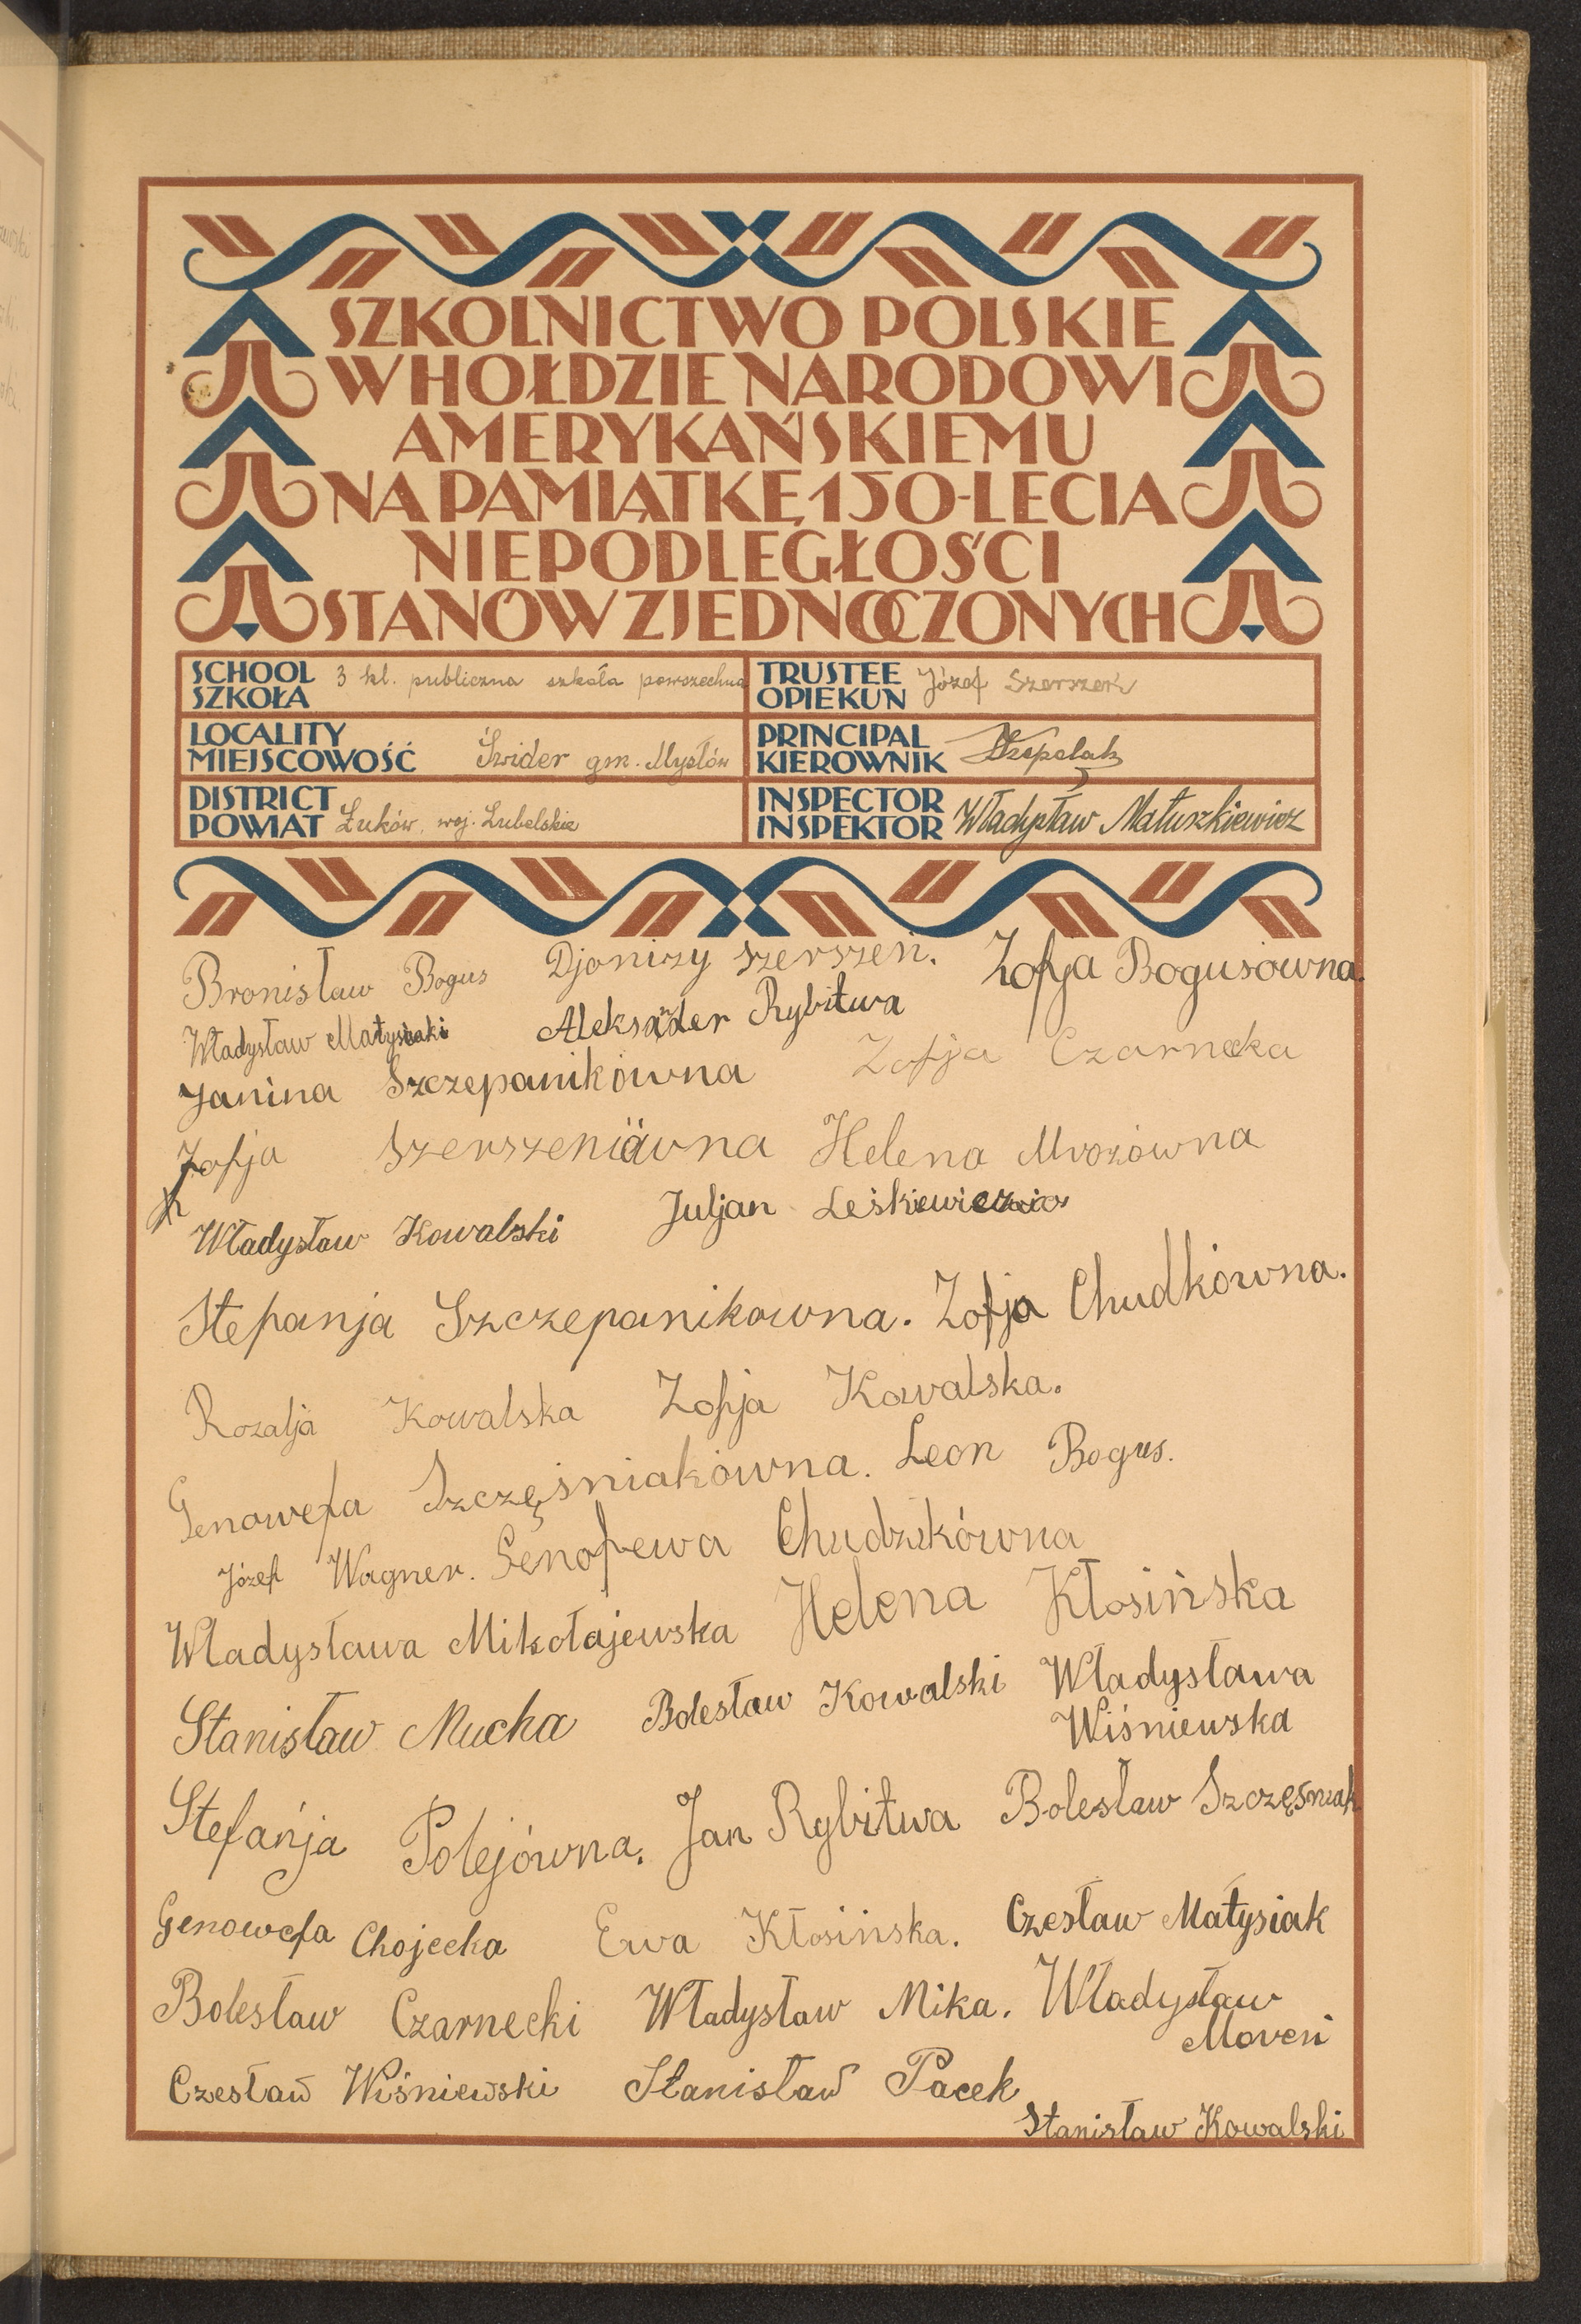 SZKOLNICTWO POLSKIE
W HOŁDZIE NARODOWI
AMERYKAŃSKIEMU
NA PAMIĄTKĘ 150-LECIA
NIEPODLEGŁOŚCI
STANÓW ZJEDNOCZONYCH
SCHOOL
SZKOŁA 3 kl. publiczna szkoła powszechna
TRUSTEE
OPIEKUN Józef Szerszeń
LOCALITY
MIEJSCOWOŚĆ Świder gm. Mysłów
PRINCIPAL
KIEROWNIK
DISTRICT
POWIAT Łuków, woj. Lubelskie
INSPECTOR
INSPEKTOR Władysław Matuszkiewicz
Bronisław Bogus Djonizy Szerszeń. Zofja Bogusówna.
Władysław Matysiak Aleksander Rybitwa
Janina Szczepanikówna Zofja Czarnecka
Zofja Szerszeniówna Helena Mrozówna
Władysław Kowalski Juljan Leśkiewicz
Stefanja Szczepanikowna. Zofja Chudkówna.
Rozalja Kowalska Zofja Kowalska.
Genowefa Szczęśniakówna. Leon Bogus.
Józef Wagner. Genofewa Chudzikówna
Władysława Mikołajewska Helena Kłosińska
Stanisław Mucha Bolesław Kowalski Władysława
Wiśniewska
Stefańja Polejówna. Jan Rybitwa Bolesław Szczęśniak
Genowefa Chojecka Ewa Kłosińska. Czesław Matysiak
Bolesław Czarnecki Władysław Mika. Władysław
Moreń
Czesław Wiśniewski Stanisław Pacek
Stanisław Kowalski